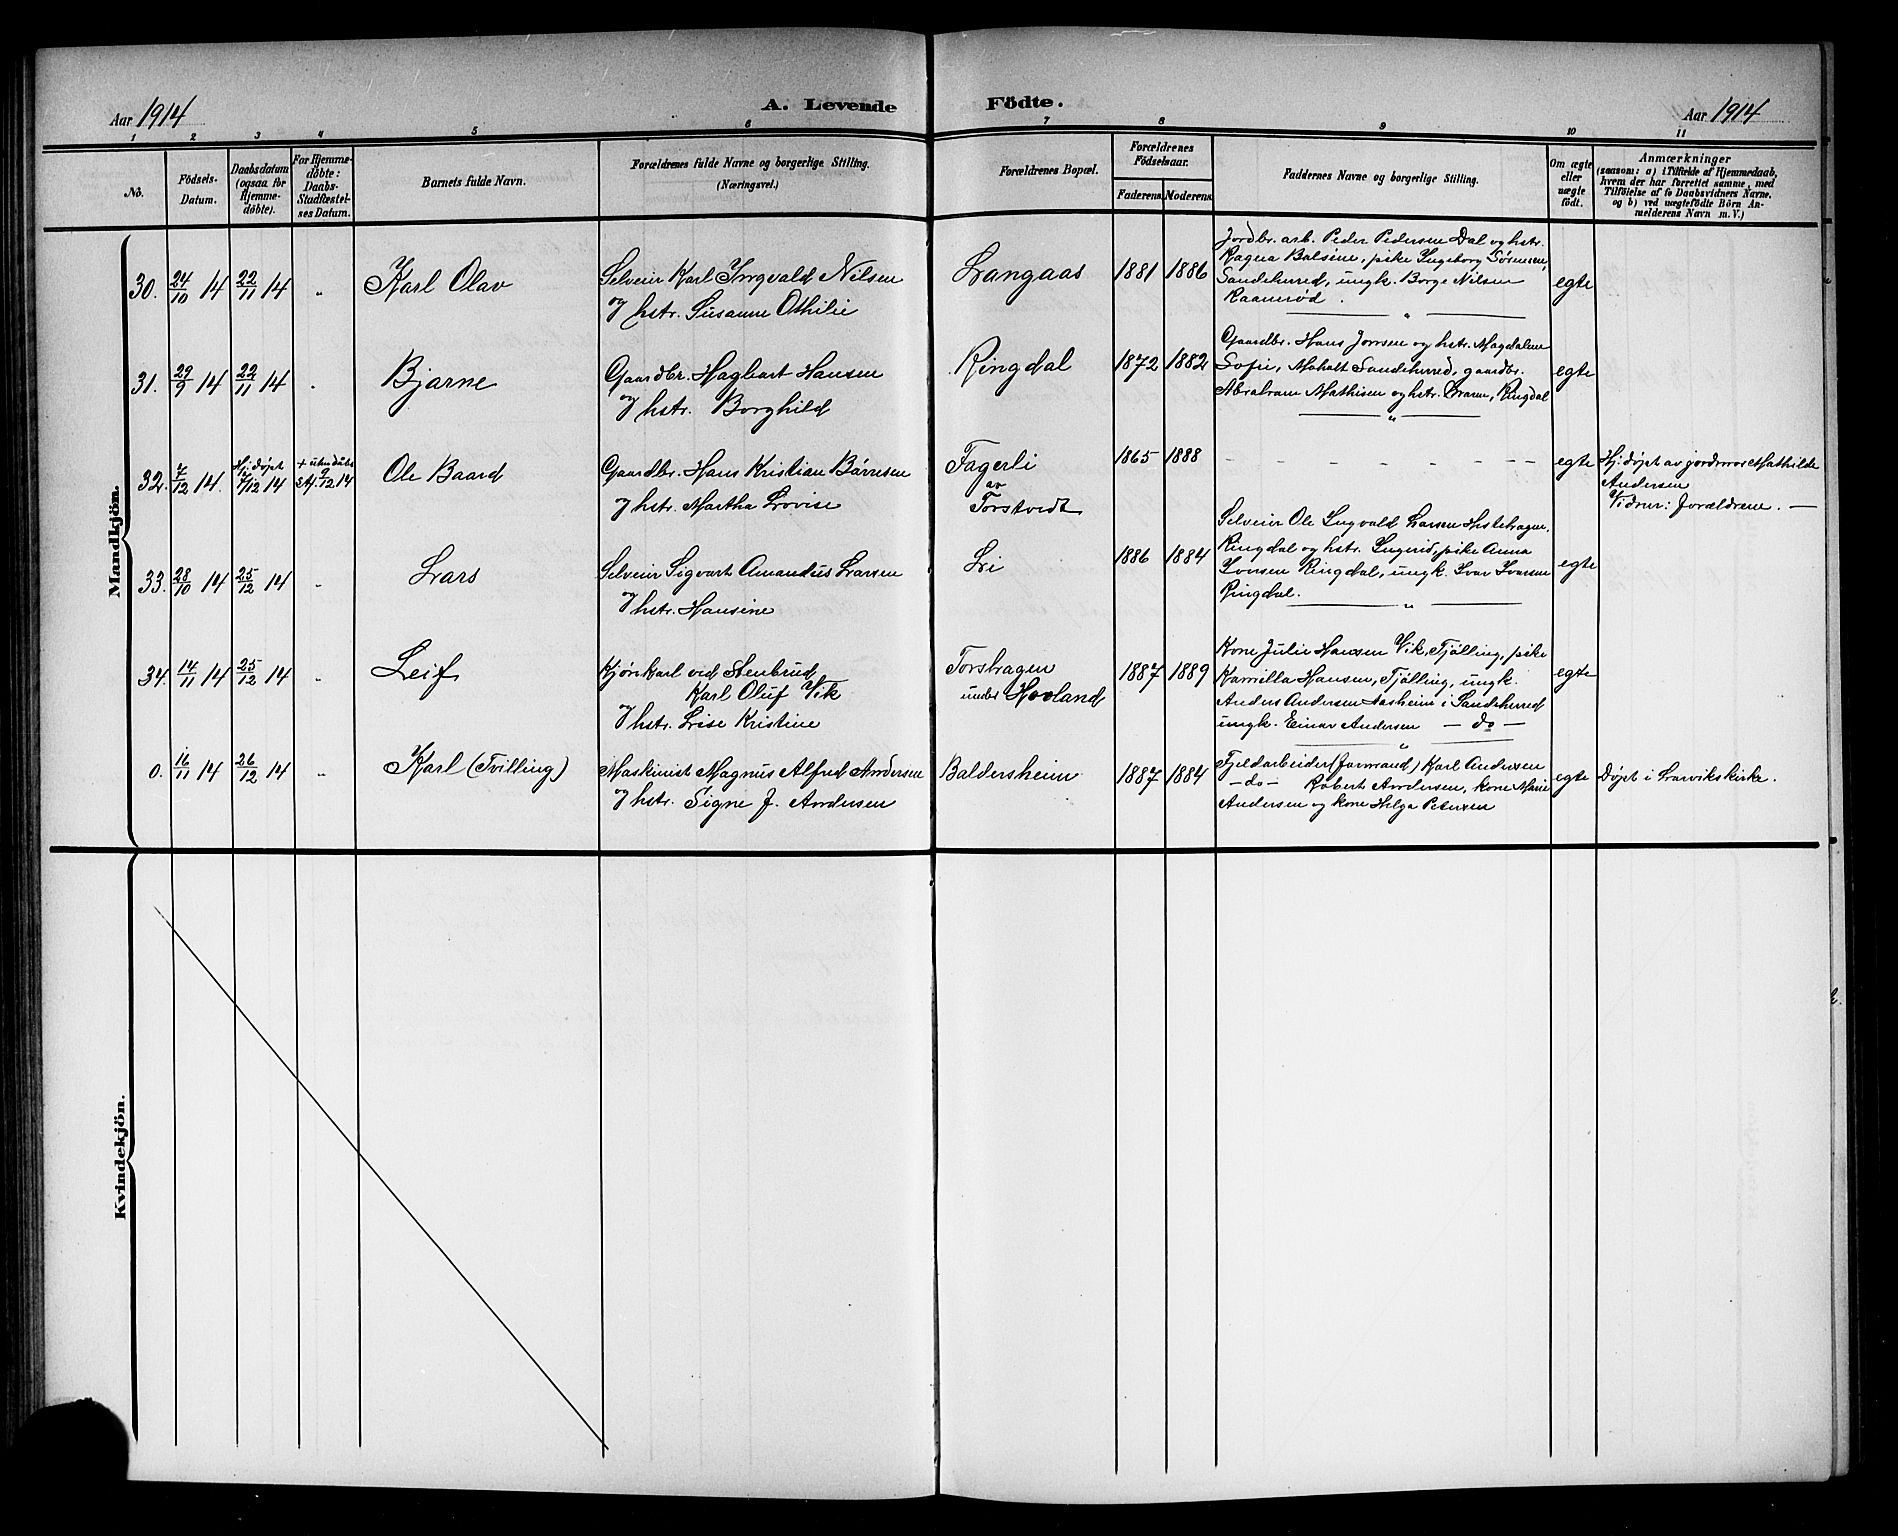 Aar 1914
A. Levende
Födte.
Aar 1914
1 2 3 4 5 6 7 8 9 10 11
No.
Födsels-
Datum.
Daabsdatum
(ogsaa for
Hjemme-
döbte).
For Hjemme-
döbte:
Daabs-
Stadfæstel-
ses Datum.
Barnets fulde Navn.
Forældrenes fulde Navne og borgerlige Stilling.
(Næringsvei.)
Forældrenes Bopæl.
Forældrenes
Födselsaar.
Faderens. Moderens.
Faddernes Navne og borgerlige Stilling.
Om ægte
eller
uægte
födt.
Anmærkninger
(saasom: a) i Tilfælde af Hjemmedaab,
hvem der har forrettet samme, med
Tilföielse af to Daabsvidners Navne,
og b) ved uægtefödte Börn An-
melderens Navn m. V.)
Mandkjön.
30. 24/10 14 22/11 14 "
Karl Olav
Selveier Karl Ingvald Nilsen
og hstr. Susanne Othilie
Langaas
1881 1886
Jordbr. arb. Peder Pedersen Dal og hstr.
Ragna Balsine, pike Ingeborg Sørensen,
Sandeherred, ungk. Borge Nilsen
Raanerød.
egte
31. 29/9 14 22/11 14 "
Bjarne
Gaardbr. Hagbart Hansen
og hstr. Borghild
Ringdal
1872 1882
Gaardbr. Hans Jonsen og hstr. Magdalene
Sofie, Moholt Sandeherred, gaardbr.
Abraham Mathisen og hstr. Ringdal
egte
32. 7/12 14. Hj. døpt 7/12 14
Ole Baard
Gaardbr. Hans Kristian Børresen
og hstr. Martha Lovise
Fagerli
av
Torstvedt
1865 1888
- - - - - - - -
egte
Hj. døpt av jordmor Mathilde
Andersen
Vidner: forældrene. —
33. 28/10 14 25/12 14 "
Lars
Selveier Sigvart Amandus Larsen
og hstr. Hansine
Li
1886 1884
Selveier Ole Ingvald Larsen Hestehagen,
Ringdal og hstr. Ingerid, pike Anna
Ivarsen Ringdal, ungk. Ivar Ivarsen
Ringdal.
egte
34. 14/11 14 25/12 14 "
Leif
Kjørekarl ved Stenbrud
Karl Oluf Vik
og hstr. Lise Kristine
Torshagen
under Hovland
1887 1889
Kone Julie Hansen Vik, Tjølling, pike
Kamilla Hansen, Tjølling, ungk.
Anders Andersen Aasheim i Sandeherred
ungk. Einar Andersen — do —
egte
0. 16/11 14 26/12 14 "
Karl (Tvilling)
Maskinist Magnus Alfred Andersen
og hstr. Signe J. Andersen
Baldersheim
1887 1884
Fjeldarbeider (formand) Karl Andersen
— do — Robert Andersen, kone Marie
Andersen og kone Helga Petersen
egte
Døpt i Larvikskirke.
Kvindekjön.